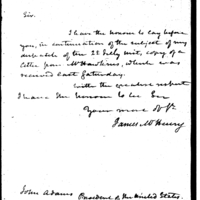 Sir.
I have the honour to lay before
you, in continuation of the subject of my
dispatch of the 22 July Inst, copy of a
letter from Mr Hawkins, which was
received last Saturday.
With the greatest respect
I have the honour to be Sir
Your most Obt.
James McHenry
John Adams
President of the United States.